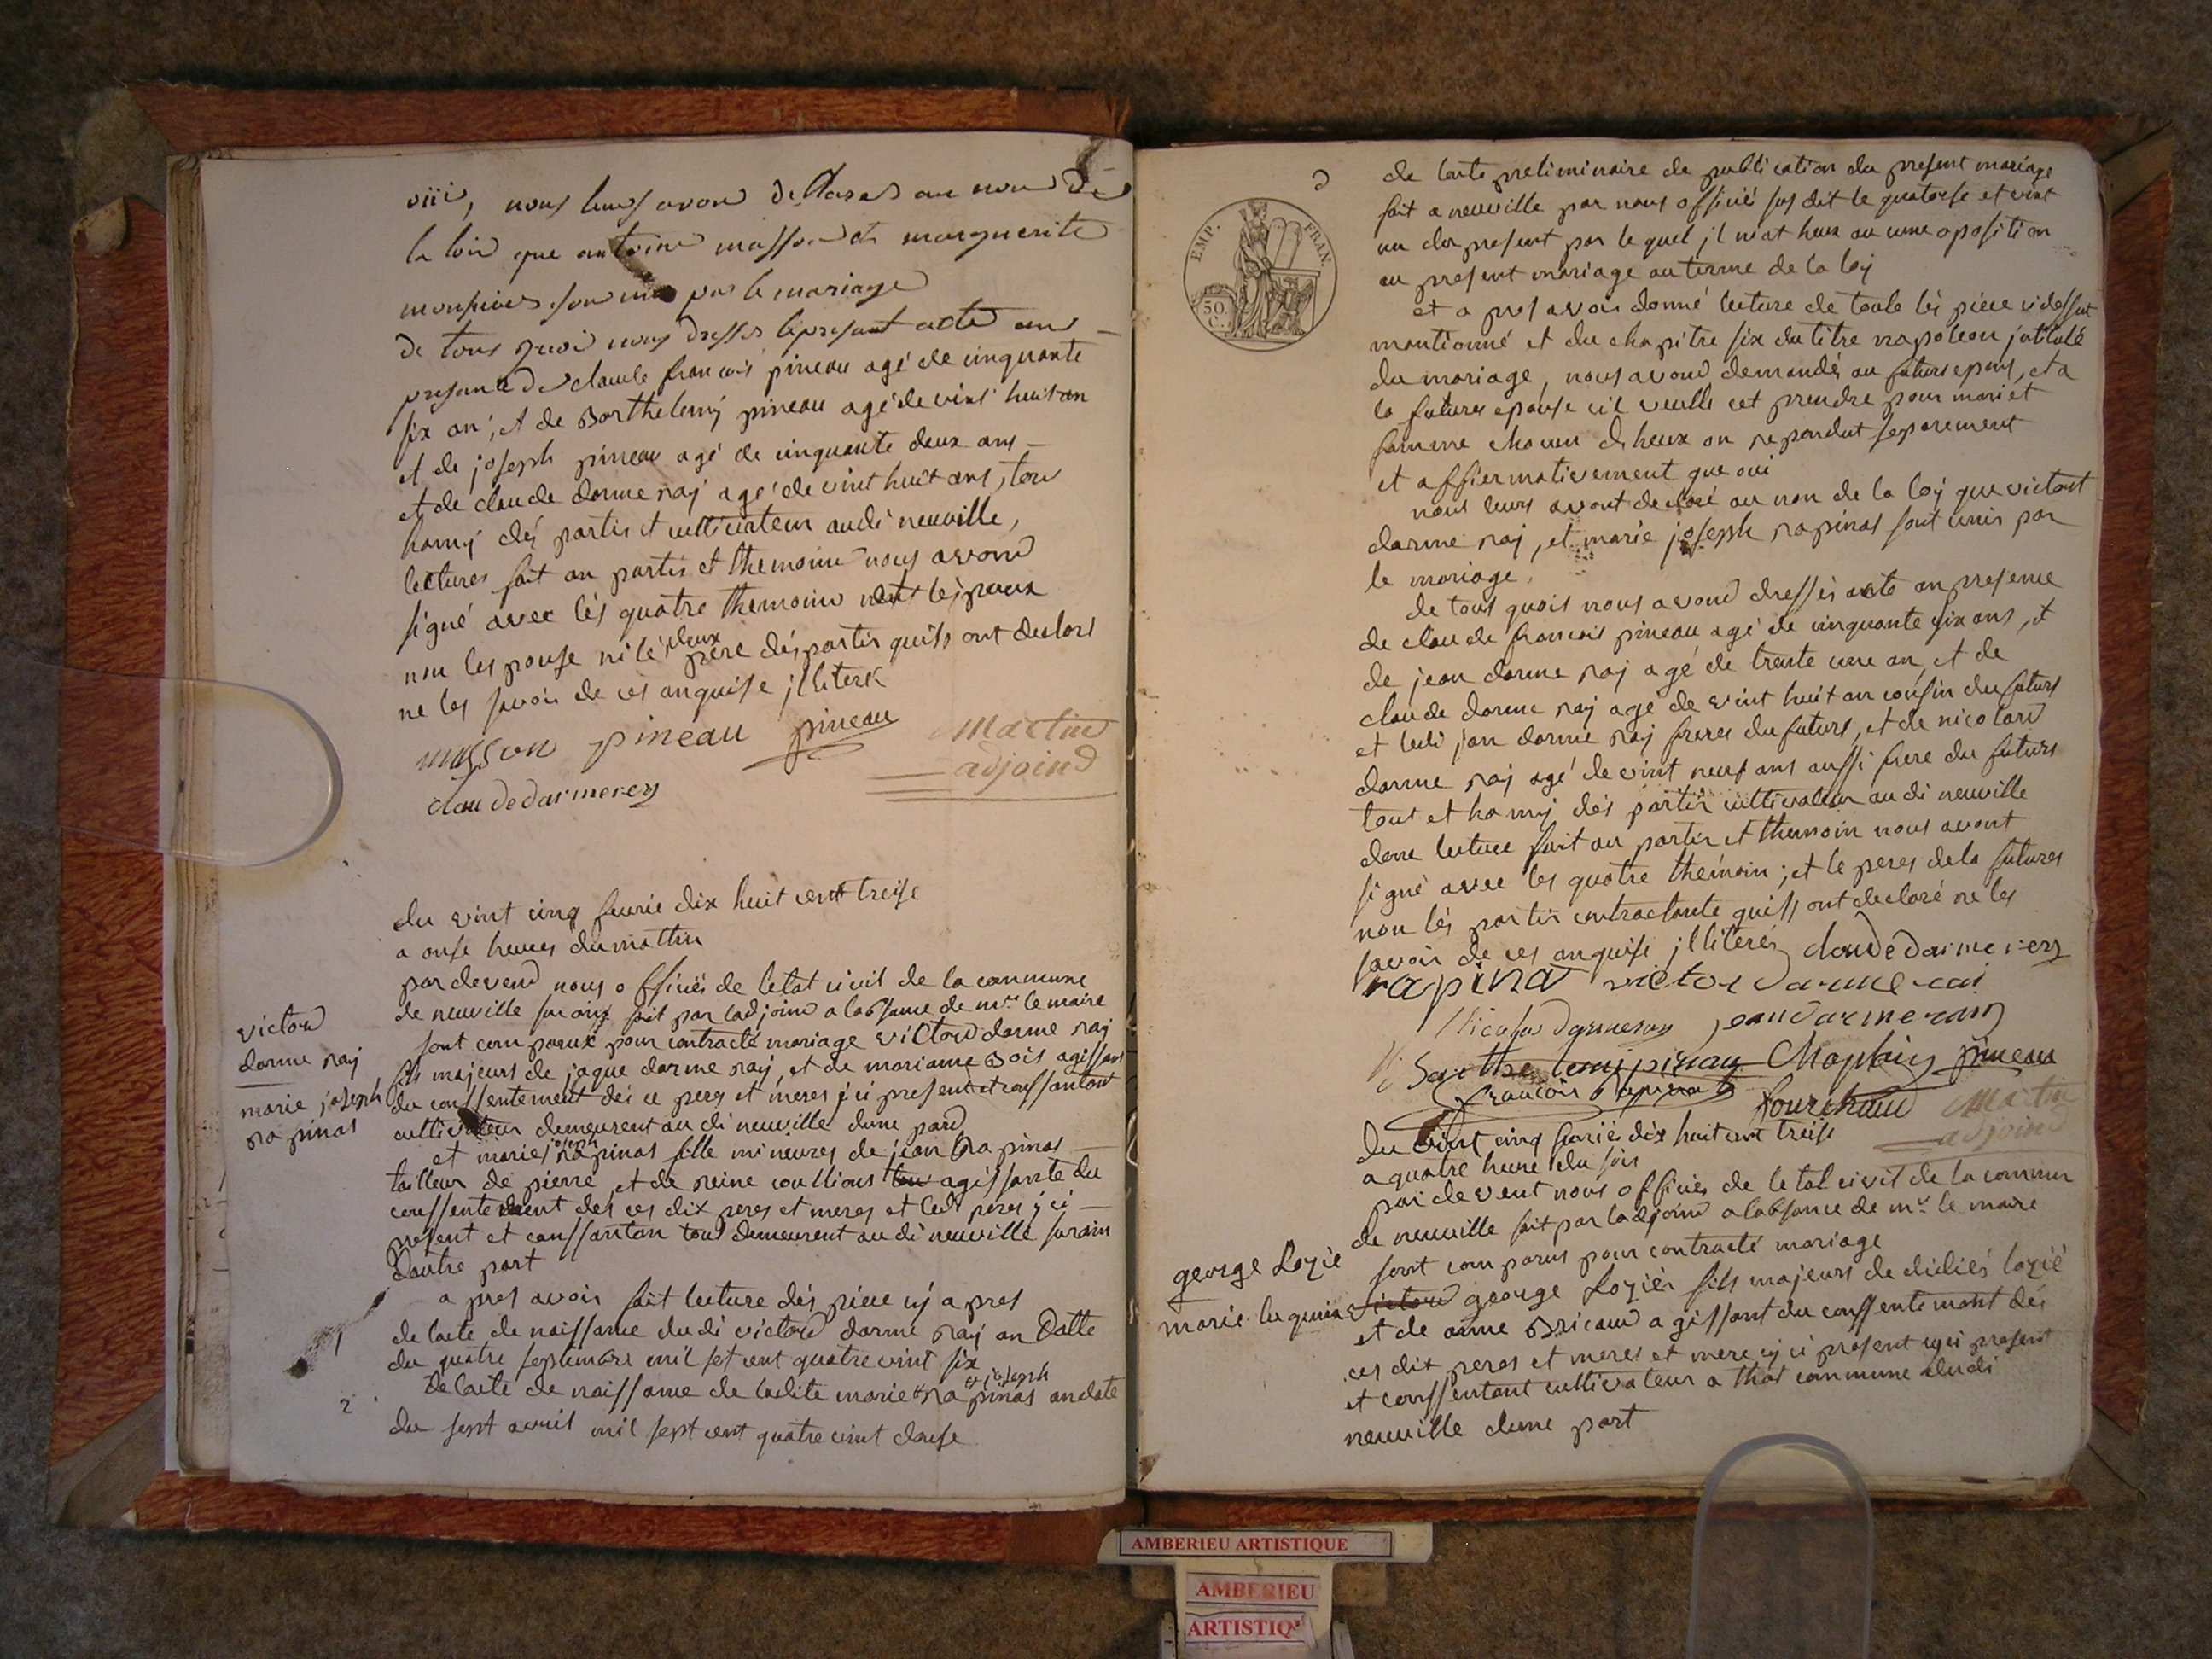 viii, nous leurs avons de Claré au nom de
la loix que antoine masson et marguerite
monpived sont uni par le mariage
de tous quoi nous dresses le present acte en
presance de claude francois pineau agé de cinquante
six an, et de Barthelemÿ pineau agé de vint huit an
et de joseph pineau agé de cinquante deux ans
et de claude darme raÿ agé de vint huit ans, tou
hamÿ dés partis et cultivateur audi neuville,
lectures fait au partis et themoins nous avons
signé avec lés quatre themoins lepoux
non les pouse ni lé deux pere dés partis quils ont declaré
ne les savoir de ces anquise jlliteré
masson pineau pineau Martin
adjoind
claude darmerey
du vint cinq feurié dix huit cent treise
a onse heures du mattin
pardevend nous officiés de letat civil de la commune
de neuville sur ain fait par ladjoind a labsance de mr le maire
sont comparux pour contracté mariage victord darme raÿ
fils majeurs de jaque darme raÿ et de mariame Bois agissant
du conssentement dés ce peres et meres j ci present et conssantant
cultivateur demeurent au di neuville dune pard
et maries joseph rapinas fille mineures de jean rapinas
tailleur de pierre et de reine coullious agissante du
conssentement des ces dix peres et meres et led peres j ci
present et conssantan tous demeurent au di neuville sur ain
dautre part
victord
darme raÿ
marie joseph
rapinas
a pres avoir fait lecture dés piece cÿ a pres
1 de lacte de naissance du di victord darme raÿ an datte
du quatre septembre mil set cent quatre vint six
2 de lacte de naissance de ladite marie joseph rapinas an date
du sept avril mil sept cent quatre vint douse
EMP. FRAN.
50 C.
de lacte preliminaire de publication du present mariage
fait a neuville par nous officié sus dit le quatorse et vint
un du present par le quel jl niat heux aucune oposition
au present mariage au terme de la loÿ
et a pres avoir donné lecture de toute lés piece ci dessut
mantionné et du chapitre six du titre napoleon jntitulé
du mariage, nous avond demandés au futurs epous, et a
la futures epouse cil veulle cet prendre pour mari et
famme chacun deheux on repondut separement
et affiermativement que oui
nous leurs avont declaré au non de la loÿ que victort
darme raÿ, et marie joseph rapinas sont unis par
le mariage
de tous quois nous avond dressés acte an presence
de claude francois pineau agé de cinquante six ans, et
de jean darme raÿ agé de trente une an, et de
claude darme raÿ agé de vint huit an cousin du futurs
et ledi jan darme raÿ freres du futurs, et de nicolard
darme raÿ agé de vint neuf ans aussi frere du futurs
tout et hamÿ dés partis cultivateur au di neuville
done lecture fait au partis et themoin nous avont
signé avec les quatre themoin; et le peres de la futures
non lés partis contractante quils ont declaré ne les
savoir de ces anquise jlliterés claude darmerey
rapina victor darmerai
Nicolas Darmeray jean darmeray
Barthelemy pineau Chapuis pineau
francois Rapinat fourchaud Martin
adjoind
du vint cinq feurié dix huit cent treise
a quatre heure du soir
par de vent nous officiés de le tat civil de la commun
de neuville fait par ladjoind a labsance de mr le maire
sont comparus pour contracté mariage
victord george Logiés fils majeurs de didiés logié
et de anne Bricaud agissant du conssentemant dés
ces dix peres et meres et mere cÿ ci present cÿ ci present
et conssentant cultivateur a thol commune du di
neuville dune part
george Logié
marie luquins
AMBERIEU ARTISTIQUE
AMBERIEU
ARTISTIQU